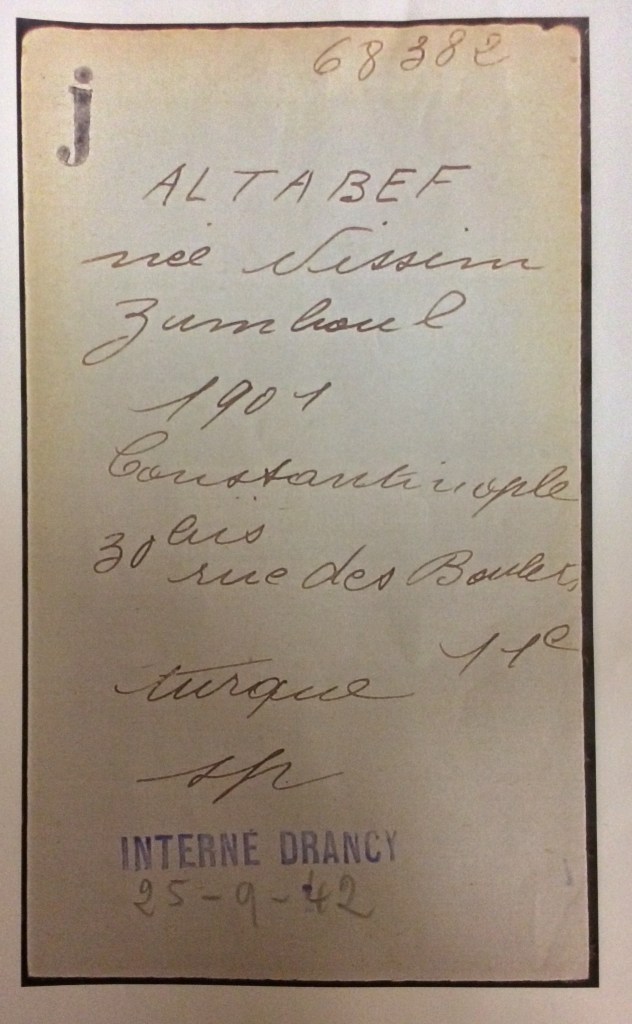 68382
j
ALTABEF
née Nissim
Zumboul
1901
Constantinople
30 bis
rue des Boulets
11e
turque
sp
INTERNÉ DRANCY
25-9-42